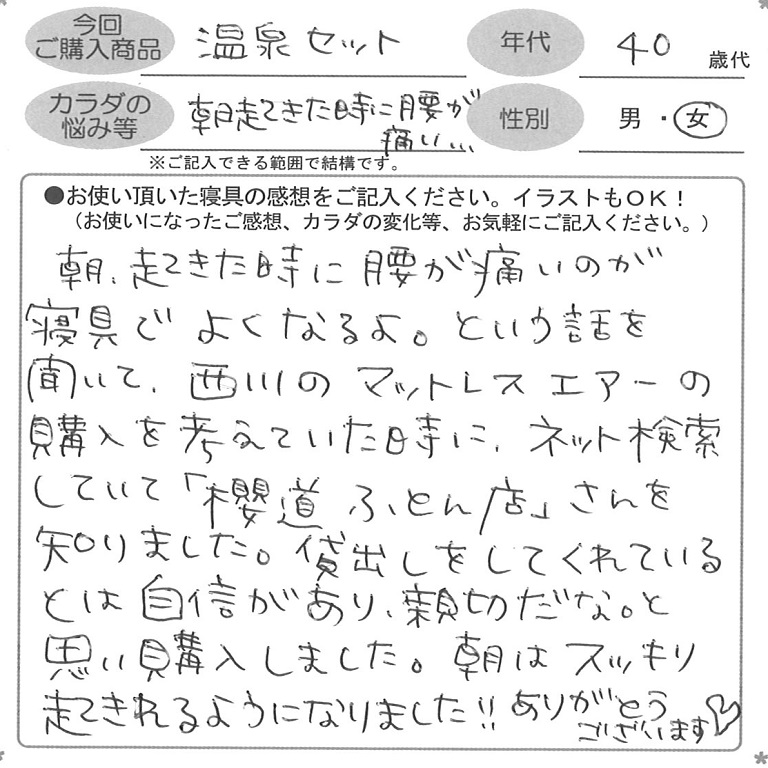 今回
ご購入商品
温泉セット
年代
40
歳代
カラダの
悩み等
朝起きてきた時に腰が
痛い...
性別
男・女
※ご記入できる範囲で結構です。
●お使い頂いた寝具の感想をご記入ください。イラストもOK！
（お使いになったご感想、カラダの変化等、お気軽にご記入ください。）
朝、起きてきた時に腰が痛いのが
寝具でよくなるよ。という話を
聞いて、西川のマットレスエアーの
購入を考えていた時に、ネット検索
していて「櫻道ふとん店」さんを
知りました。貸出しをしてくれている
とは自信があり、親切だな。と
思い購入しました。朝はスッキリ
起きれるようになりました!! ありがとう
ございます♡